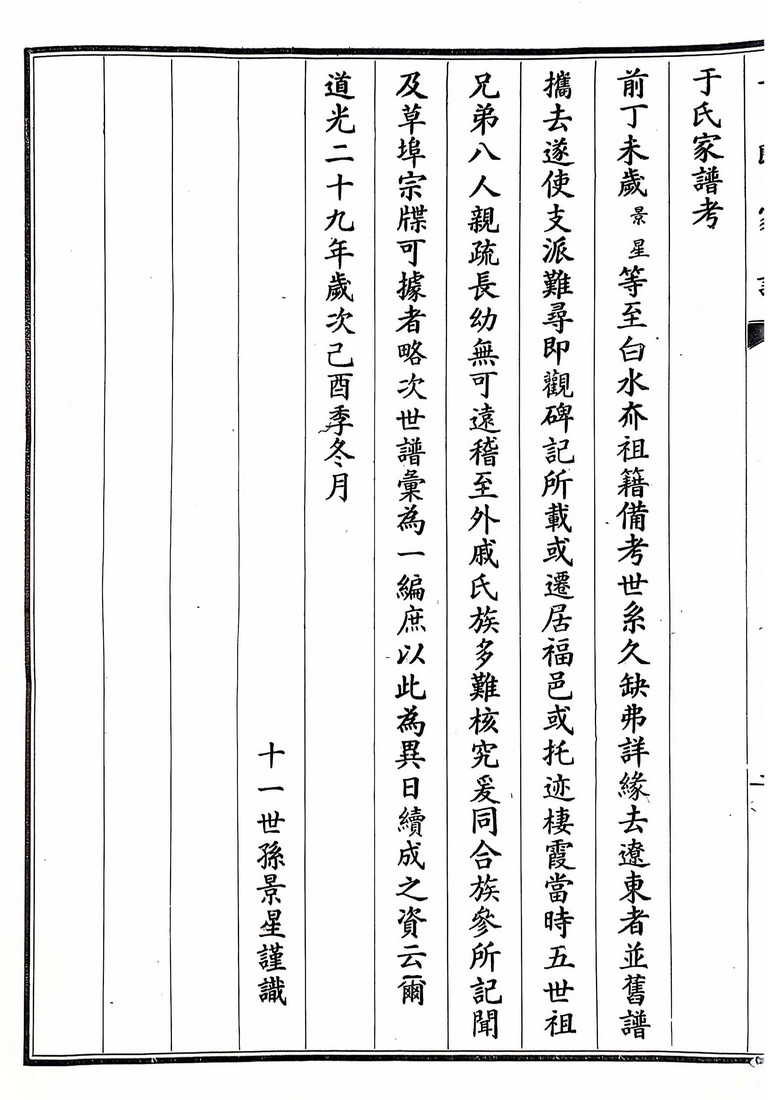 于氏家譜考
前丁未歲景星等至白水夼祖籍備考世系久缺弗詳緣去遼東者並舊譜
攜去遂使支派難尋即觀碑記所載或遷居福邑或托迹棲霞當時五世祖
兄弟八人親疏長幼無可遠稽至外戚氏族多難核究爰同合族參所記聞
及草埠宗牒可據者略次世譜彙為一編庶以此為異日續成之資云爾
道光二十九年歲次己酉季冬月
十一世孫景星謹識